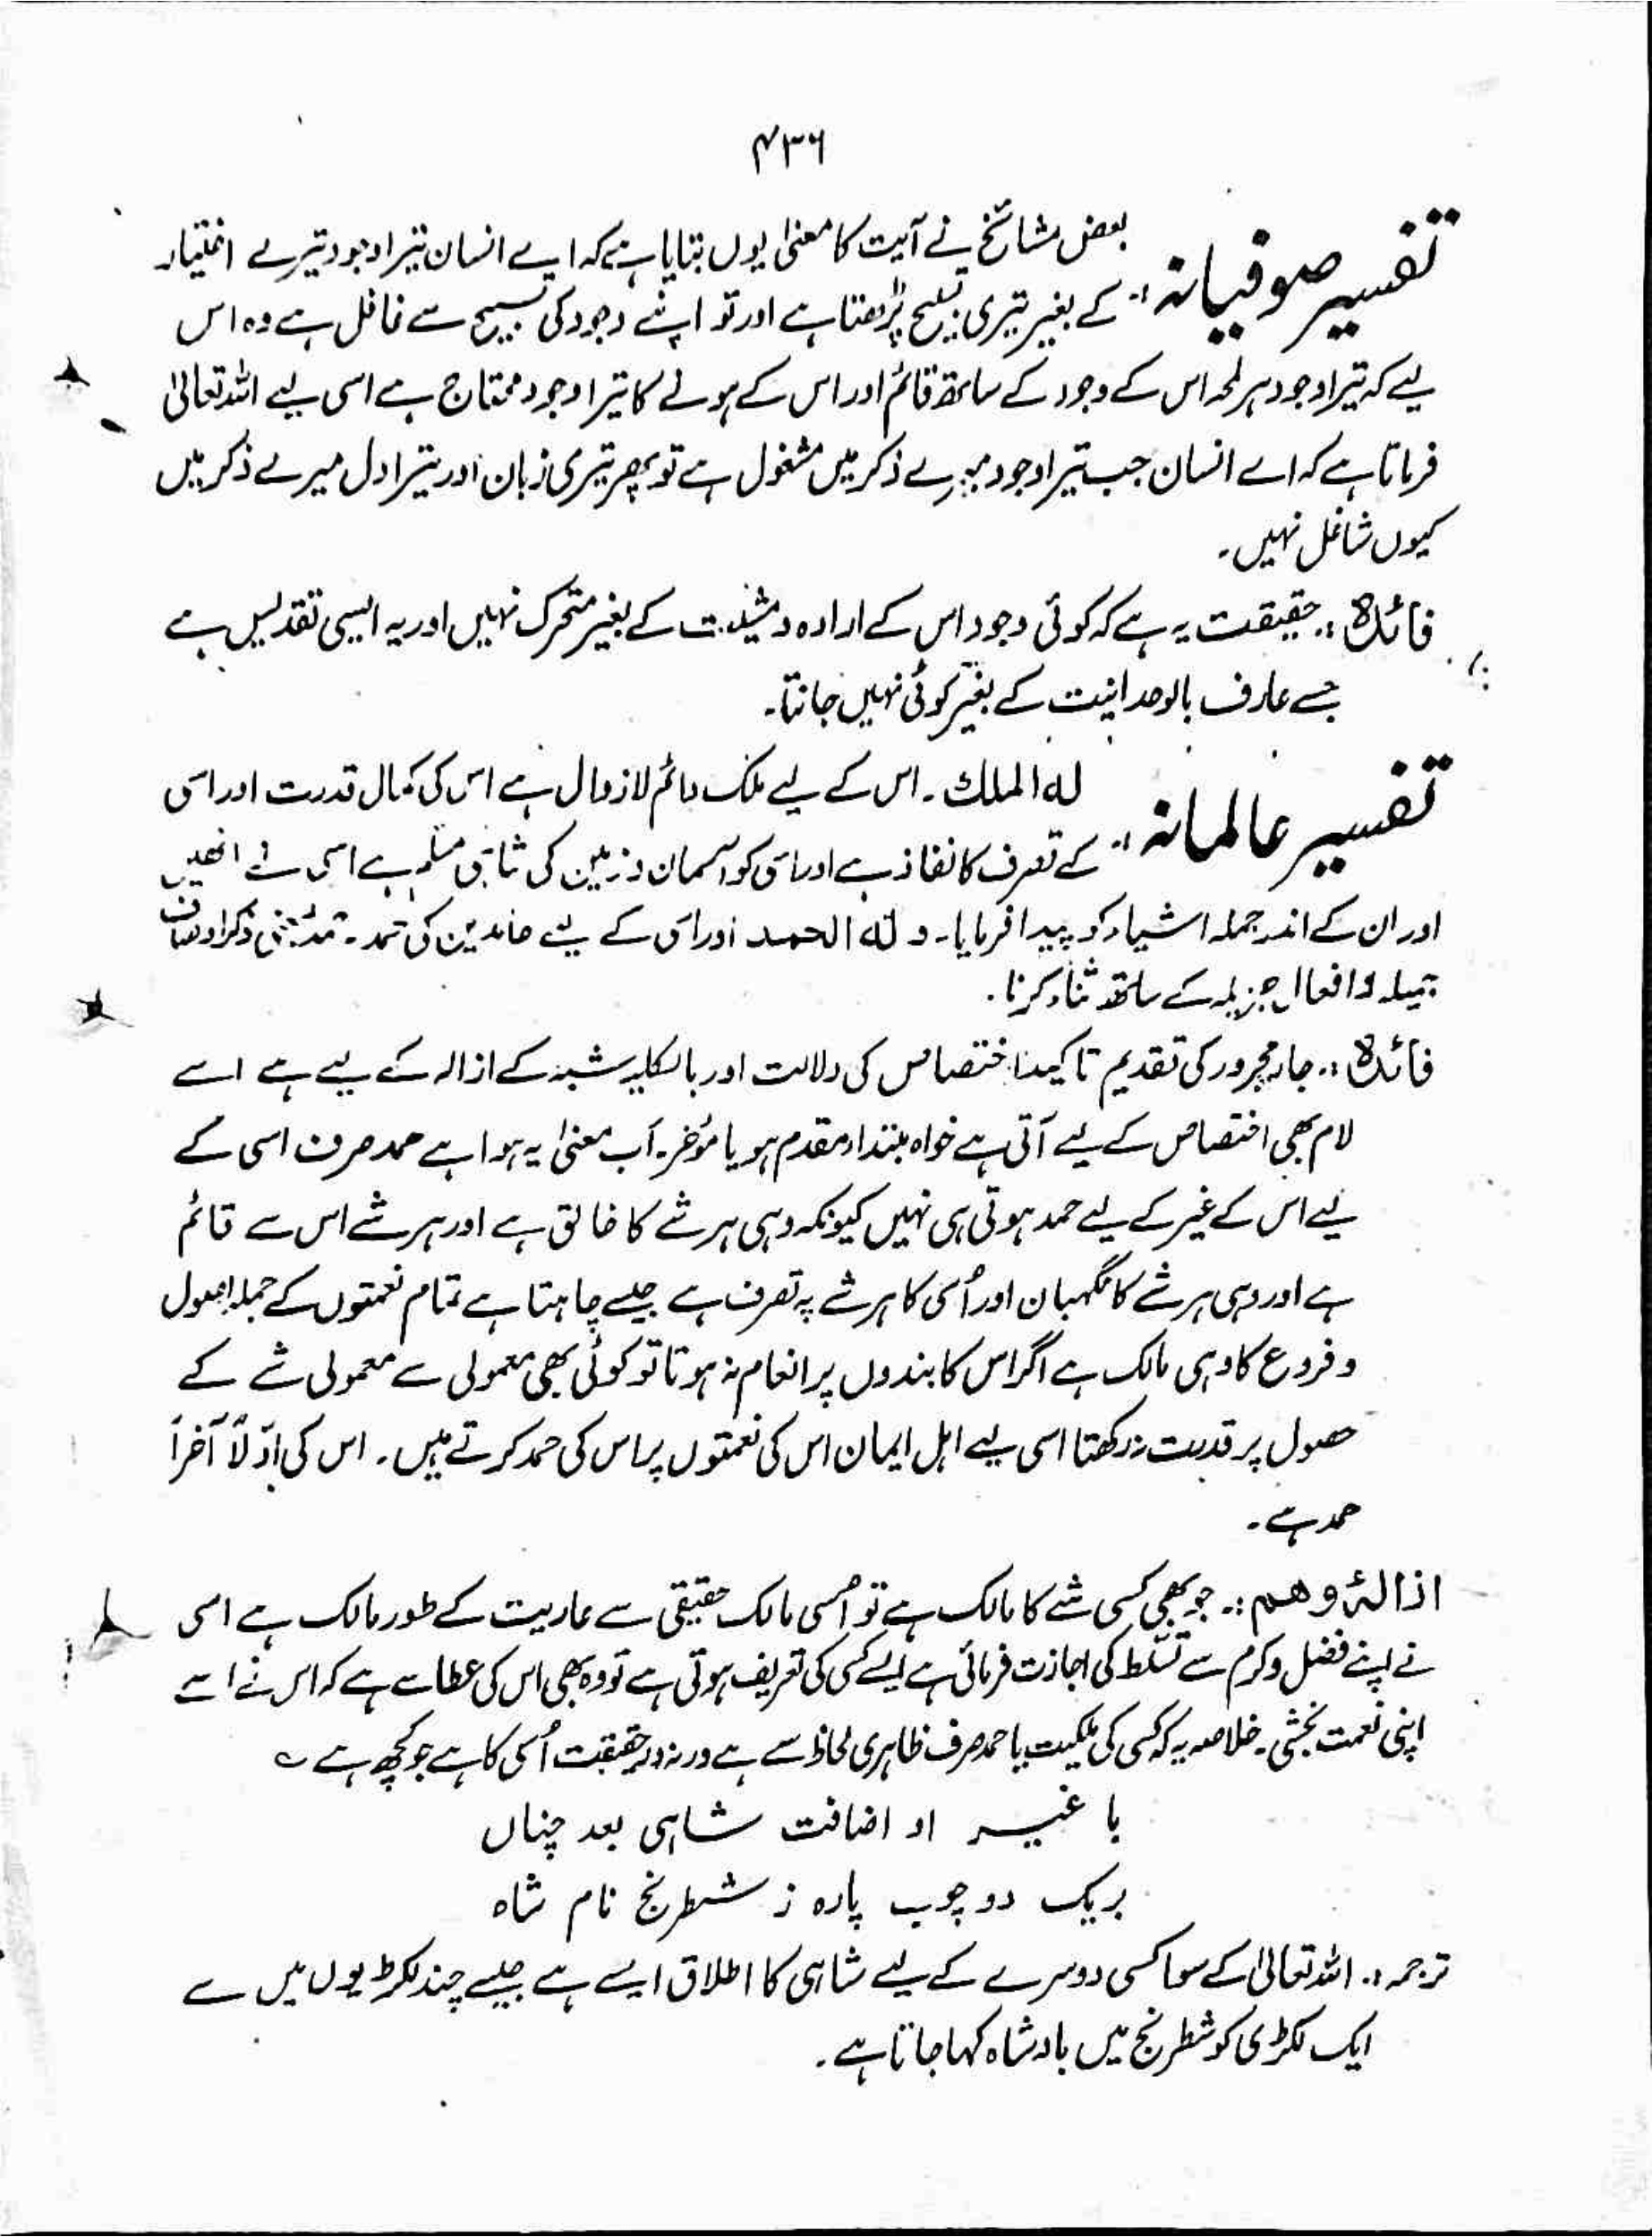 ۴۳۶
تفسیر صوفیانہ :۔ بعض مشائخ نے آیت کا معنیٰ یوں بتایا ہے کہ اے انسان تیرا وجود تیرے اختیار
کے بغیر تیری تسبیح پڑھتا ہے اور تو اپنے وجود کی تسبیح سے غافل ہے وہ اس
لیے کہ تیرا وجود ہر لمحہ اس کے وجود کے ساتھ قائم اور اس کے ہونے کا تیرا وجود محتاج ہے اسی لیے اللہ تعالیٰ
فرماتا ہے کہ اے انسان جب تیرا وجود میرے ذکر میں مشغول ہے تو پھر تیری زبان اور تیرا دل میرے ذکر میں
کیوں شاغل نہیں۔
فائدہ :۔ حقیقت یہ ہے کہ کوئی وجود اس کے ارادہ و مشیت کے بغیر متحرک نہیں اور یہ ایسی تقدیس ہے
جسے عارف بالوحدانیت کے بغیر کوئی نہیں جانتا۔
تفسیر عالمانہ :۔ لہ الملک ۔ اس کے لیے ملک دائم لازوال ہے اس کی کمال قدرت اور اسی
کے تصرف کا نفاذ ہے اور اسی کو آسمان و زمین کی شاہی مسلم ہے اسی نے انھیں
اور ان کے اندر جملہ اشیاء کو پیدا فرمایا۔ و لہ الحمد اور اسی کے لیے حامدین کی حمد ۔ حمد بمعنی ذکر اوصاف
جمیلہ و افعال جزیلہ کے ساتھ ثناء کرنا ۔
فائدہ :۔ جار مجرور کی تقدیم تاکید اختصاص کی دلالت اور بالکلیہ شبہ کے ازالہ کے لیے ہے اسے
لام بھی اختصاص کے لیے آتی ہے خواہ مبتداء مقدم ہو یا مؤخر۔ اب معنیٰ یہ ہوا ہے حمد صرف اسی کے
لیے اس کے غیر کے لیے حمد ہوتی ہی نہیں کیونکہ وہی ہر شے کا خالق ہے اور ہر شے اس سے قائم
ہے اور وہی ہر شے کا نگہبان اور اُسی کا ہر شے پہ تصرف ہے جیسے چاہتا ہے تمام نعمتوں کے جملہ اصول
و فروع کا وہی مالک ہے اگر اس کا بندوں پر انعام نہ ہوتا تو کوئی بھی معمولی سے معمولی شے کے
حصول پر قدرت نہ رکھتا اسی لیے اہل ایمان اس کی نعمتوں پر اس کی حمد کرتے ہیں ۔ اس کی اوّلاً آخراً
حمد ہے ۔
ازالۂ وھم :۔ جو بھی کسی شے کا مالک ہے تو اُسی مالک حقیقی سے عاریت کے طور مالک ہے اسی
نے اپنے فضل و کرم سے تسلّط کی اجازت فرمائی ہے ایسے کسی کی تعریف ہوتی ہے تو وہ بھی اس کی عطا سے ہے کہ اس نے اسے
اپنی نعمت بخشی۔ خلاصہ یہ کہ کسی کی ملکیت یا حمد صرف ظاہری لحاظ سے ہے ورنہ درحقیقت اُسی کا ہے جو کچھ ہے ؎
با غیر او اضافت شاہی بعد چناں
بریک دو چوب پارہ ز شطرنج نام شاہ
ترجمہ :۔ اللہ تعالیٰ کے سوا کسی دوسرے کے لیے شاہی کا اطلاق ایسے ہے جیسے چند لکڑیوں میں سے
ایک لکڑی کو شطرنج میں بادشاہ کہا جاتا ہے ۔